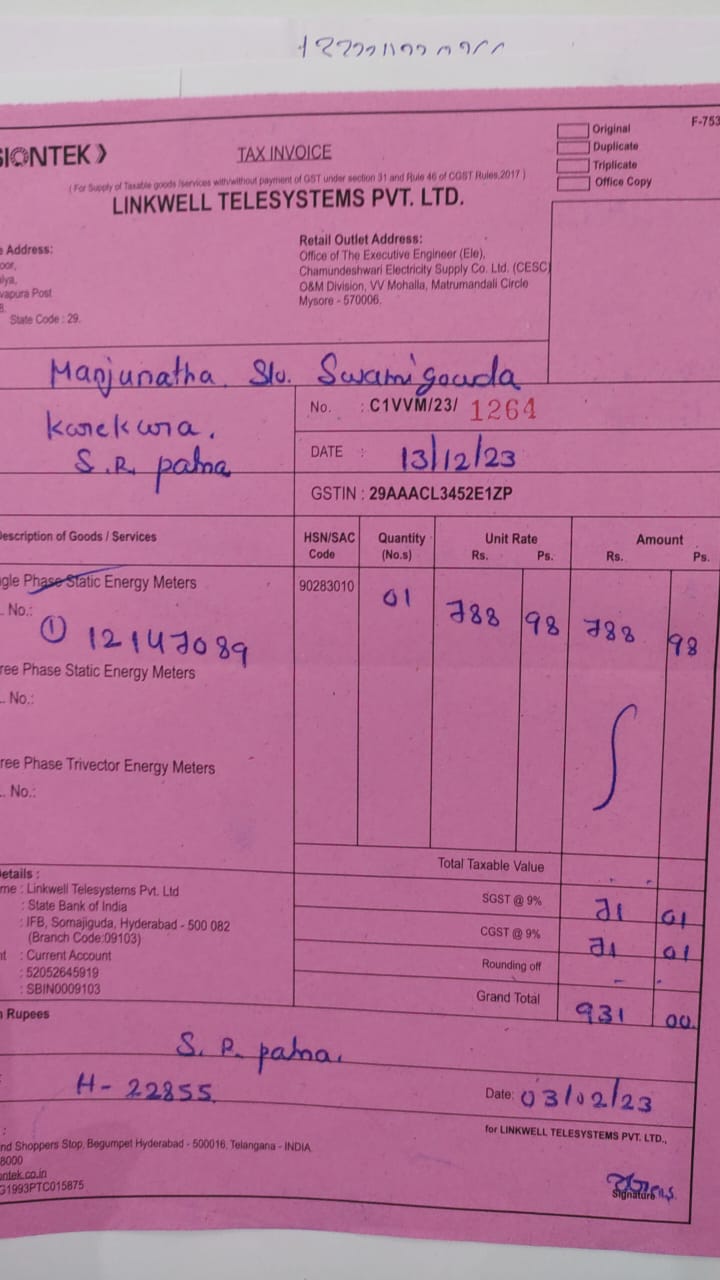 SIONTEK
TAX INVOICE
Original
Duplicate
Triplicate
Office Copy
F-753
( For Supply of Taxable goods /services with/without payment of GST under section 31 and Rule 46 of CGST Rules,2017 )
LINKWELL TELESYSTEMS PVT. LTD.
Address:
vapura Post
State Code : 29.
Retail Outlet Address:
Office of The Executive Engineer (Ele),
Chamundeshwari Electricity Supply Co. Ltd. (CESC)
O&M Division, VV Mohalla, Matrumandali Circle
Mysore - 570006.
Manjunatha S/o. Swamigowda
Karekura.
S.R. patna
No. : C1VVM/23/ 1264
DATE : 13/12/23
GSTIN : 29AAACL3452E1ZP
Description of Goods / Services HSN/SAC Code Quantity (No.s) Unit Rate Rs. Ps. Amount Rs. Ps.
gle Phase Static Energy Meters 90283010 01 788 98 788 98
. No.:
① 12147089
ree Phase Static Energy Meters
.. No.:
ree Phase Trivector Energy Meters
.. No.:
Total Taxable Value
SGST @ 9% 71 01
CGST @ 9% 71 01
Rounding off - -
Grand Total 931 00
Details :
me : Linkwell Telesystems Pvt. Ltd
: State Bank of India
: IFB, Somajiguda, Hyderabad - 500 082
(Branch Code:09103)
nt : Current Account
: 52052645919
: SBIN0009103
Rupees
S. R. patna.
H- 22855
Date: 03/02/23
for LINKWELL TELESYSTEMS PVT. LTD.,
nd Shoppers Stop, Begumpet Hyderabad - 500016, Telangana - INDIA
8000
ontek.co.in
G1993PTC015875
Signature